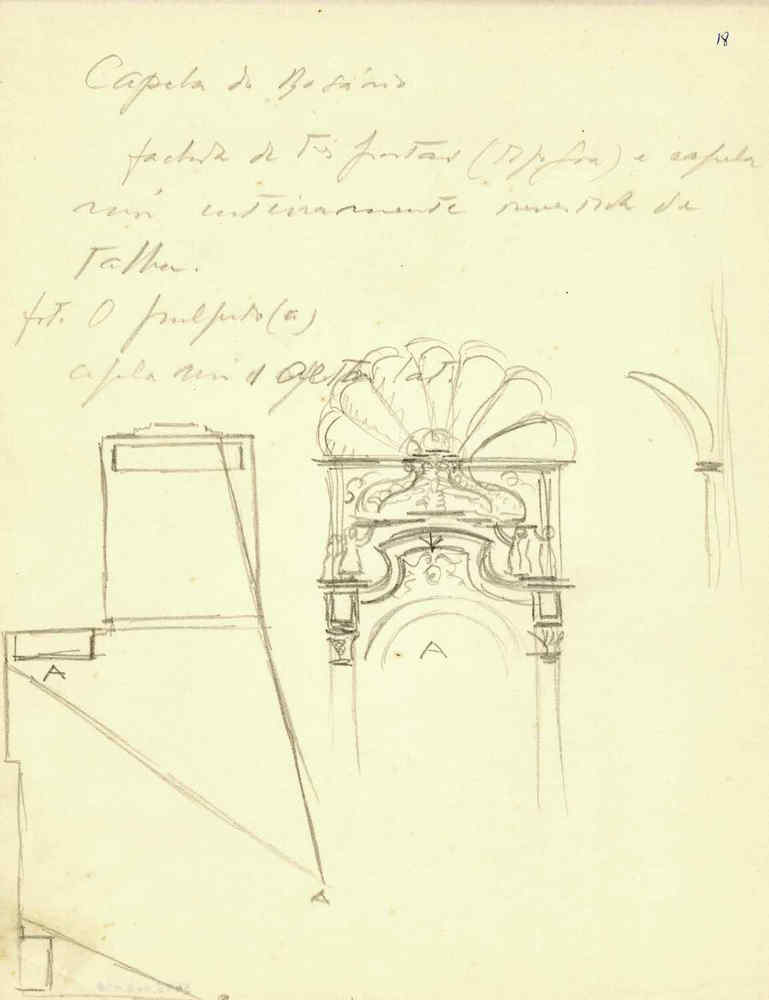 18
Capela do Rosário
fachada de três portas (tipo Goa) e capela
mór inteiramente revestida de
talha.
fot. O pulpito (a)
capela mór
A
A
A